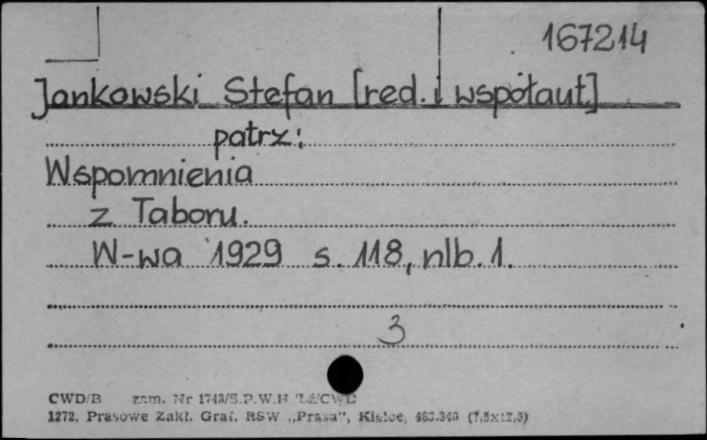 167214
Jankowski Stefan [red. i współaut]
patrz:
Wspomnienia
z Taboru.
W-wa 1929 s. 118, nlb. 1.
3
CWD/B zam. Nr 1743/S.P.W.H
1272. Prasowe Zakł. Graf. RSW „Prasa”, Kielce,